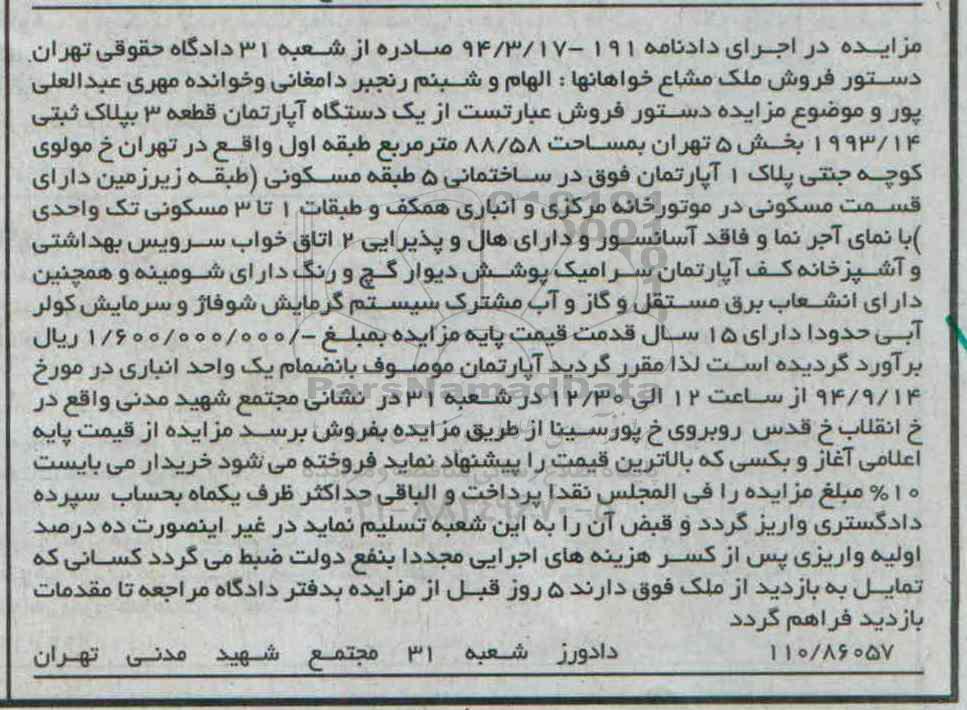 مزایده در اجرای دادنامه ۱۹۱ -۹۴/۳/۱۷ صادره از شعبه ۳۱ دادگاه حقوقی تهران
دستور فروش ملک مشاع خواهانها : الهام و شبنم رنجبر دامغانی وخوانده مهری عبدالعلی
پور و موضوع مزایده دستور فروش عبارتست از یک دستگاه آپارتمان قطعه ۳ بپلاک ثبتی
۱۹۹۳/۱۴ بخش ۵ تهران بمساحت ۸۸/۵۸ مترمربع طبقه اول واقع در تهران خ مولوی
کوچه جنتی پلاک ۱ آپارتمان فوق در ساختمانی ۵ طبقه مسکونی (طبقه زیرزمین دارای
قسمت مسکونی در موتورخانه مرکزی و انباری همکف و طبقات ۱ تا ۳ مسکونی تک واحدی
)با نمای آجر نما و فاقد آسانسور و دارای هال و پذیرایی ۲ اتاق خواب سرویس بهداشتی
و آشپزخانه کف آپارتمان سرامیک پوشش دیوار گچ و رنگ دارای شومینه و همچنین
دارای انشعاب برق مستقل و گاز و آب مشترک سیستم گرمایش شوفاژ و سرمایش کولر
آبی حدودا دارای ۱۵ سال قدمت قیمت پایه مزایده بمبلغ -/۱/۶۰۰/۰۰۰/۰۰۰ ریال
برآورد گردیده است لذا مقرر گردید آپارتمان موصوف بانضمام یک واحد انباری در مورخ
۹۴/۹/۱۴ از ساعت ۱۲ الی ۱۲/۳۰ در شعبه ۳۱ در نشانی مجتمع شهید مدنی واقع در
خ انقلاب خ قدس روبروی خ پورسینا از طریق مزایده بفروش برسد مزایده از قیمت پایه
اعلامی آغاز و بکسی که بالاترین قیمت را پیشنهاد نماید فروخته می شود خریدار می بایست
۱۰% مبلغ مزایده را فی المجلس نقدا پرداخت و الباقی حداکثر ظرف یکماه بحساب سپرده
دادگستری واریز گردد و قبض آن را به این شعبه تسلیم نماید در غیر اینصورت ده درصد
اولیه واریزی پس از کسر هزینه های اجرایی مجددا بنفع دولت ضبط می گردد کسانی که
تمایل به بازدید از ملک فوق دارند ۵ روز قبل از مزایده بدفتر دادگاه مراجعه تا مقدمات
بازدید فراهم گردد
۱۱۰/۸۶۰۵۷ دادورز شعبه ۳۱ مجتمع شهید مدنی تهران
ParsNamadData